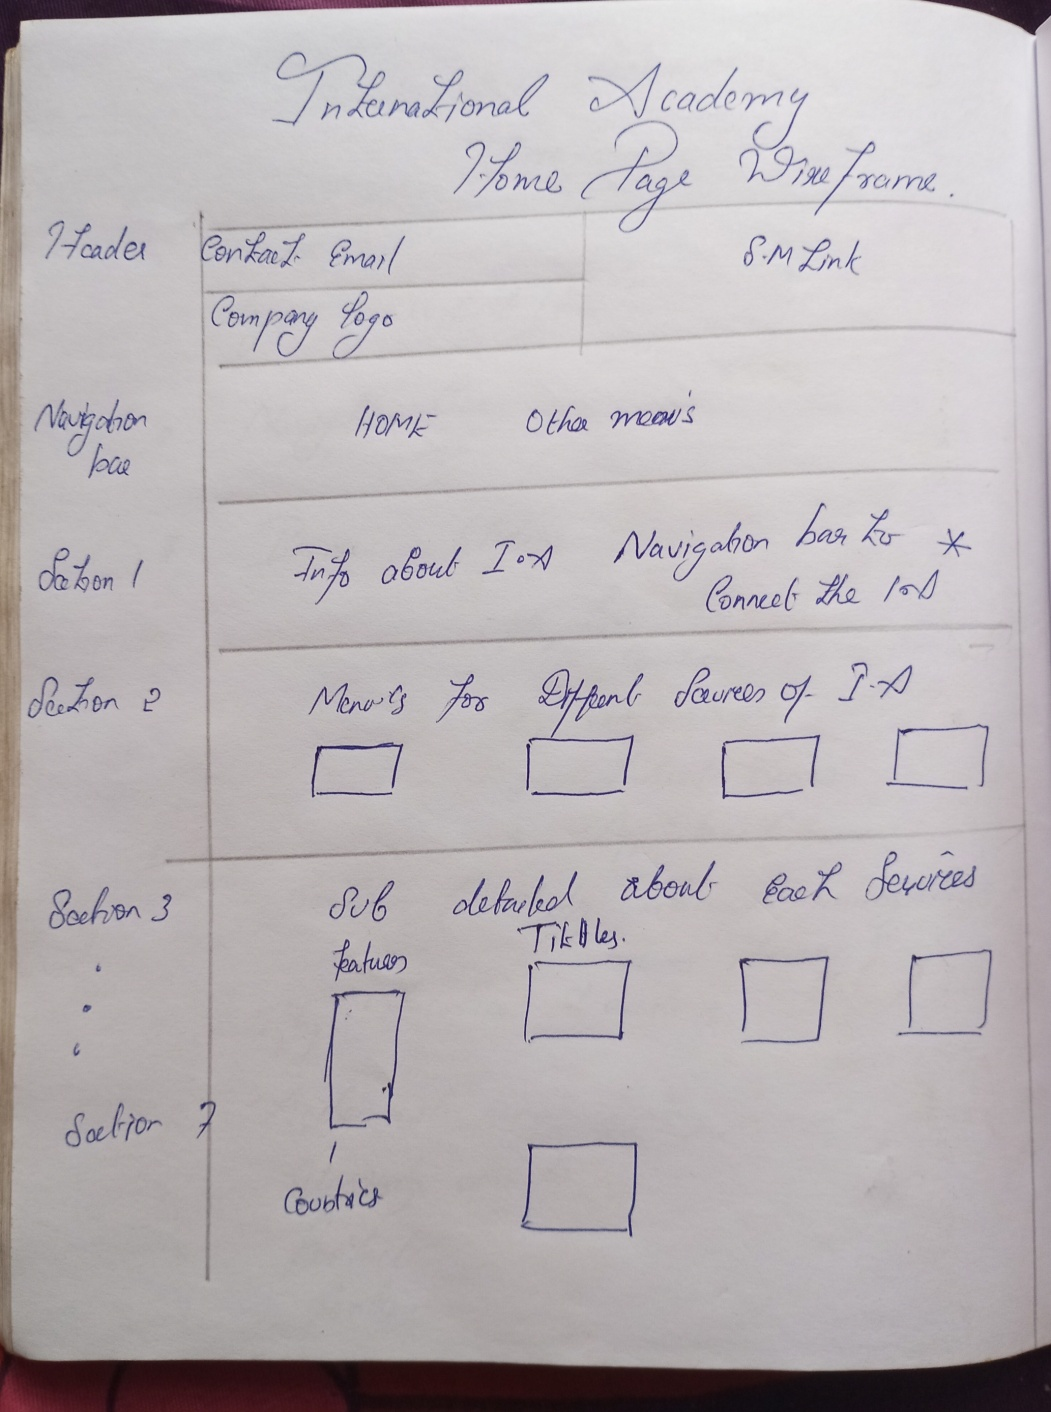 International Academy
Home Page Wireframe.
Header
Contact Email
S.M Link
Company logo
Navigation bar
HOME Other menu's
Section 1
Info about I.A
Navigation bar to *
Connect the I.A
Section 2
Menu's for Different Services of I.A
Section 3
Sub detailed about Each Services
features
Titles.
Section 7
Countries